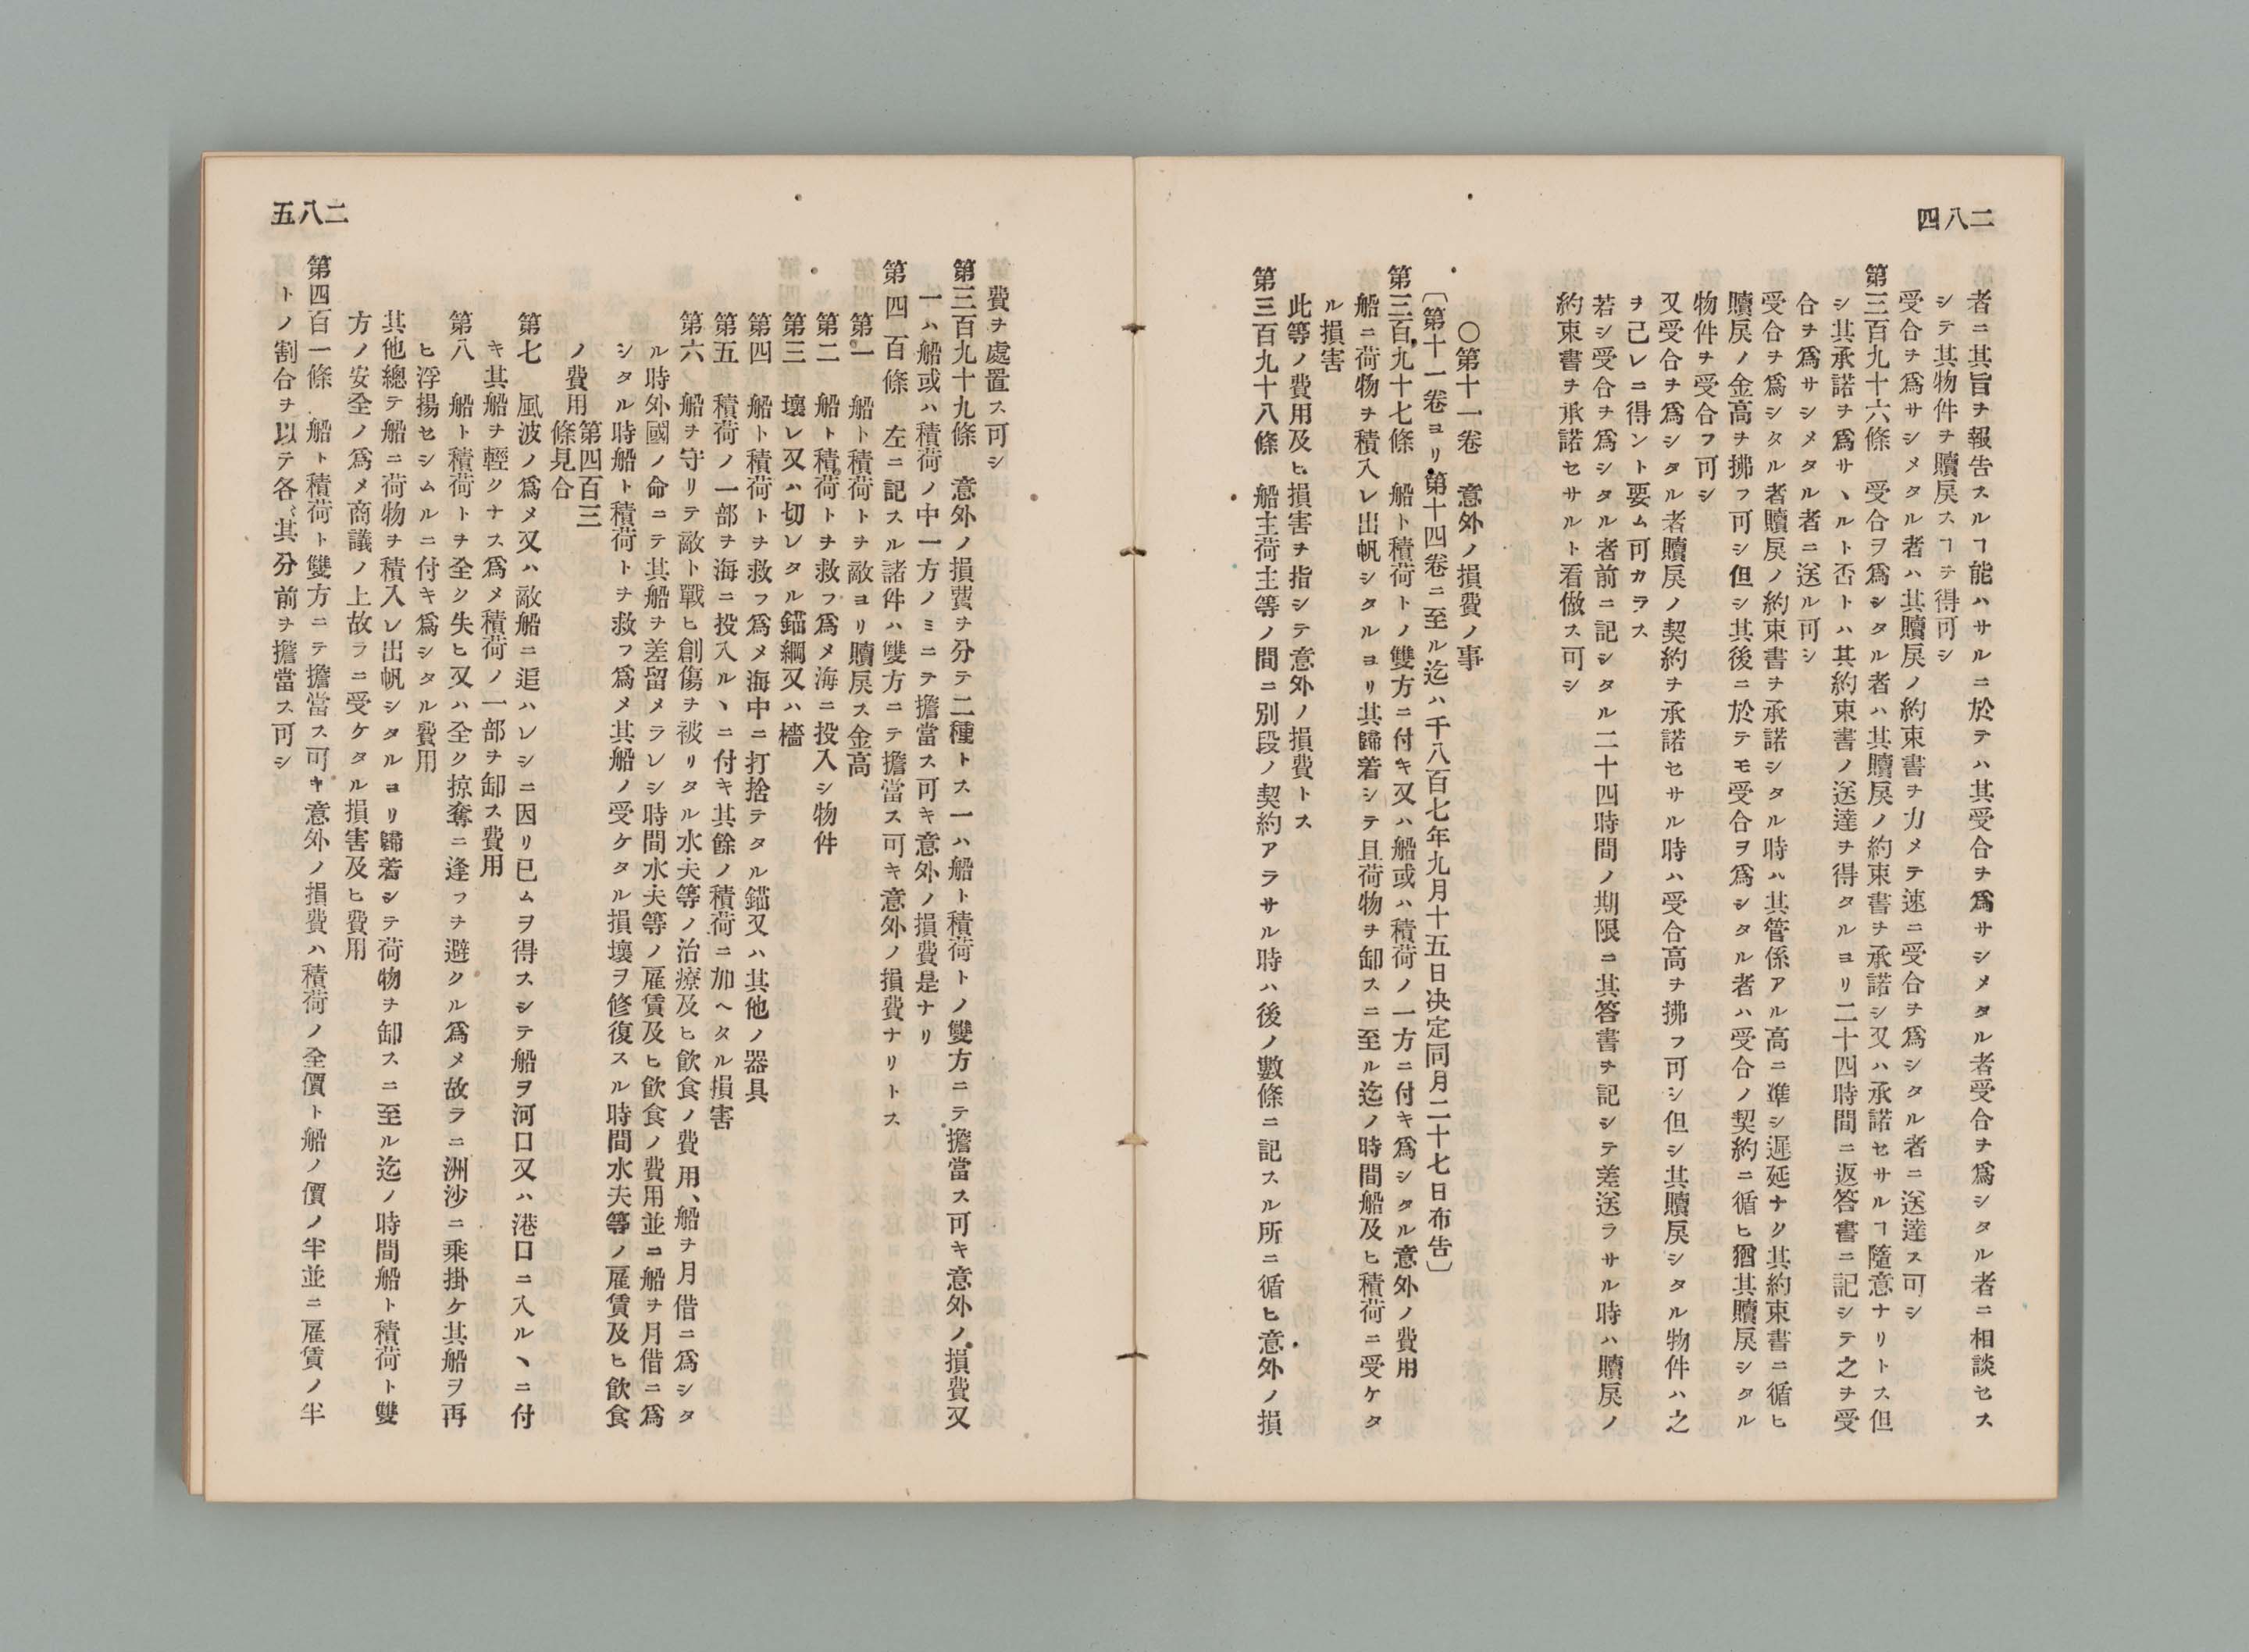 二八四
者ニ其旨ヲ報告スルヿ能ハサルニ於テハ其受合ヲ爲サシメタル者受合ヲ爲シタル者ニ相談セス
シテ其物件ヲ贖戻スヿヲ得可シ
受合ヲ爲サシメタル者ハ其贖戻ノ約束書ヲ力メテ速ニ受合ヲ爲シタル者ニ送達ス可シ
第三百九十六條　受合ヲ爲シタル者ハ其贖戻ノ約束書ヲ承諾シ又ハ承諾セサルヿ隨意ナリトス但
シ其承諾ヲ爲サヽルト否トハ其約束書ノ送達ヲ得タルヨリ二十四時間ニ返答書ニ記シテ之ヲ受
合ヲ爲サシメタル者ニ送ル可シ
受合ヲ爲シタル者贖戻ノ約束書ヲ承諾シタル時ハ其管係アル高ニ凖シ遲延ナク其約束書ニ循ヒ
贖戻ノ金高ヲ拂フ可シ但シ其後ニ於テモ受合ヲ爲シタル者ハ受合ノ契約ニ循ヒ猶其贖戻シタル
物件ヲ受合フ可シ
又受合ヲ爲シタル者贖戻ノ契約ヲ承諾セサル時ハ受合高ヲ拂フ可シ但シ其贖戻シタル物件ハ之
ヲ己レニ得ント要ム可カラス
若シ受合ヲ爲シタル者前ニ記シタル二十四時間ノ期限ニ其答書ヲ記シテ差送ラサル時ハ贖戻ノ
約束書ヲ承諾セサルト看做ス可シ
○第十一卷　意外ノ損費ノ事
〔第十一卷ヨリ第十四卷ニ至ル迄ハ千八百七年九月十五日决定同月二十七日布告〕
第三百九十七條　船ト積荷トノ雙方ニ付キ又ハ船或ハ積荷ノ一方ニ付キ爲シタル意外ノ費用
船ニ荷物ヲ積入レ出帆シタルヨリ其歸着シテ且荷物ヲ卸スニ至ル迄ノ時間船及ヒ積荷ニ受ケタ
ル損害
此等ノ費用及ヒ損害ヲ指シテ意外ノ損費トス
第三百九十八條　船主荷主等ノ間ニ別段ノ契約アラサル時ハ後ノ數條ニ記スル所ニ循ヒ意外ノ損
二八五
費ヲ處置ス可シ
第三百九十九條　意外ノ損費ヲ分テ二種トス一ハ船ト積荷トノ雙方ニテ擔當ス可キ意外ノ損費又
一ハ船或ハ積荷ノ中一方ノミニテ擔當ス可キ意外ノ損費是ナリ
第四百條　左ニ記スル諸件ハ雙方ニテ擔當ス可キ意外ノ損費ナリトス
第一　船ト積荷トヲ敵ヨリ贖戻ス金高
第二　船ト積荷トヲ救フ爲メ海ニ投入シ物件
第三　壞レ又ハ切レタル錨綱又ハ檣
第四　船ト積荷トヲ救フ爲メ海中ニ打捨テタル錨又ハ其他ノ器具
第五　積荷ノ一部ヲ海ニ投入ルヽニ付キ其餘ノ積荷ニ加ヘタル損害
第六　船ヲ守リテ敵ト戰ヒ創傷ヲ被リタル水夫等ノ治療及ヒ飮食ノ費用、船ヲ月借ニ爲シタ
ル時外國ノ命ニテ其船ヲ差留メラレシ時間水夫等ノ雇賃及ヒ飮食ノ費用並ニ船ヲ月借ニ爲
シタル時船ト積荷トヲ救フ爲メ其船ノ受ケタル損壞ヲ修復スル時間水夫等ノ雇賃及ヒ飮食
ノ費用　第四百三條見合
第七　風波ノ爲メ又ハ敵船ニ逅ハレシニ因リ已ムヲ得スシテ船ヲ河口又ハ港口ニ入ルヽニ付
キ其船ヲ輕クナス爲メ積荷ノ一部ヲ卸ス費用
第八　船ト積荷トヲ全ク失ヒ又ハ全ク掠奪ニ逢フヲ避クル爲メ故ラニ洲沙ニ乘掛ケ其船ヲ再
ヒ浮揚セシムルニ付キ爲シタル費用
其他總テ船ニ荷物ヲ積入レ出帆シタルヨリ歸着シテ荷物ヲ卸スニ至ル迄ノ時間船ト積荷ト雙
方ノ安全ノ爲メ商議ノ上故ラニ受ケタル損害及ヒ費用
第四百一條　船ト積荷ト雙方ニテ擔當ス可キ意外ノ損費ハ積荷ノ全價ト船ノ價ノ半並ニ雇賃ノ半
トノ割合ヲ以テ各〻其分前ヲ擔當ス可シ